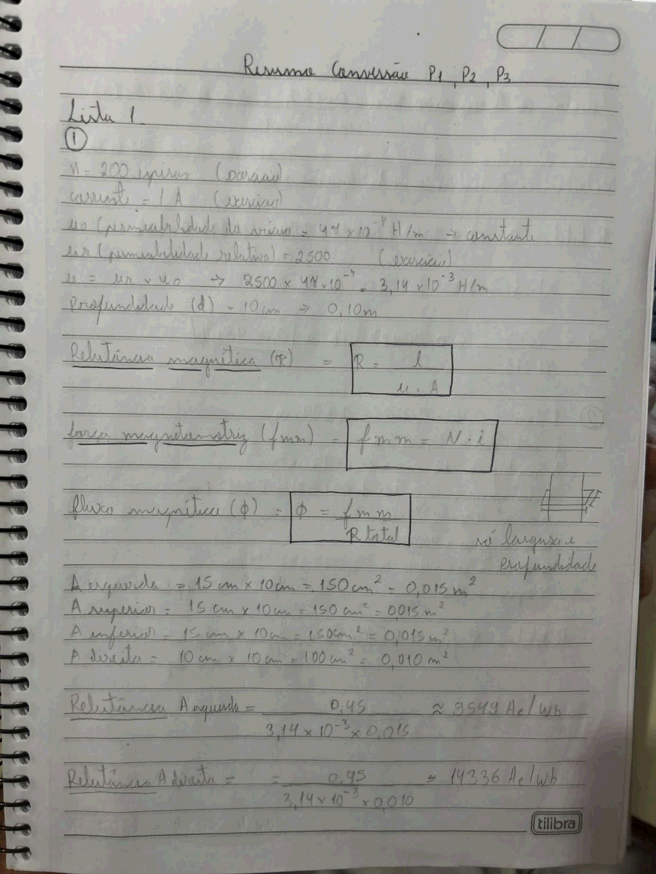 Resumo Conversão P1, P2, P3
Lista 1
1
N = 200 espiras (exercício)
corrente = 1 A (exercício)
uo (permeabilidade do vácuo = 4π×10⁻⁷ H/m → constante
ur (permeabilidade relativa) = 2500 (exercício)
u = ur × uo → 2500 × 4π×10⁻⁷ = 3,14×10⁻³ H/m
Profundidade (d) = 10cm → 0,10m
Relutância magnética (R) = R = l / u . A
força magnetomotriz (fmm) = fmm = N . i
fluxo magnético (ϕ) = ϕ = fmm / R total
só largura e
profundidade
A esquerda = 15 cm × 10cm = 150 cm² = 0,015 m²
A superior = 15 cm × 10cm = 150 cm² = 0015 m²
A inferior = 15 cm × 10cm = 150cm² = 0,015 m²
A direita = 10 cm × 10cm = 100 cm² = 0,010 m²
Relutância A esquerda = 0,45 / 3,14 × 10⁻³ × 0,015 ≈ 9549 Ae/Wb
Relutância A direita = = 0,45 / 3,14×10⁻³ × 0,010 ≈ 14336 Ae/Wb
tilibra